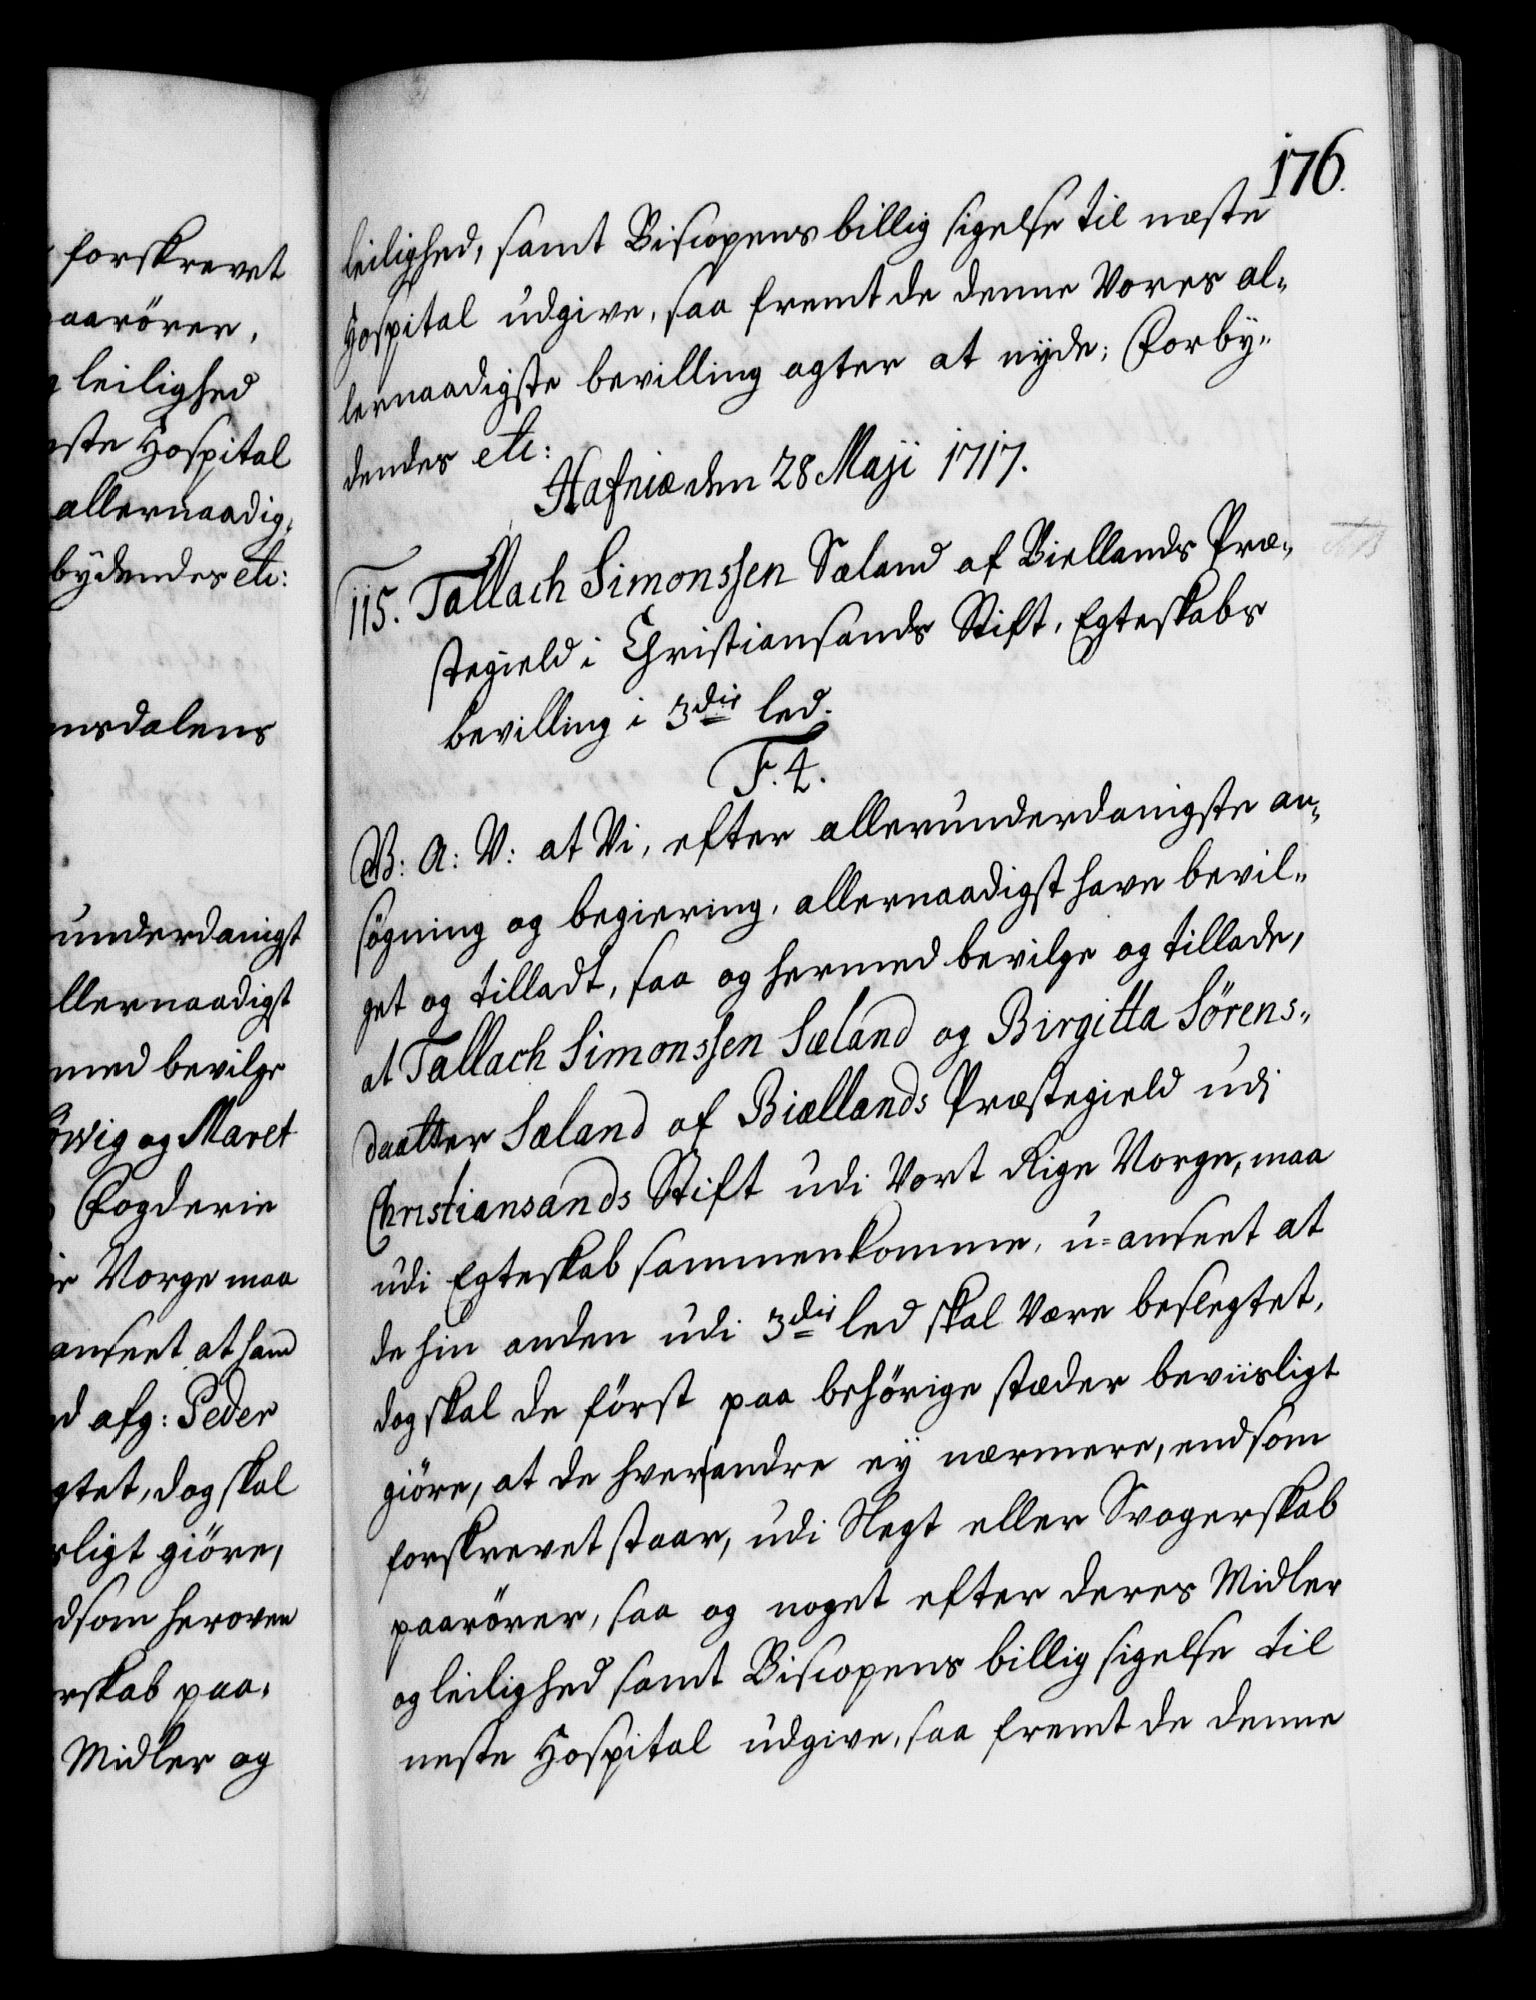 forskrevet
paarörer,
leilighed
Hospital
allernaadig,,
bydendes etc:
underdanigst
allernaadigst
med bevilge
og Maret
Fogderie
Norge maa
anseet at hand
afg: Peder
dog skal
giöre,
som heroven
paa,,
Midler og
176.
leilighed, samt Biscopens billig sigelse til næste
Hospital udgive, saa fremt de denne Vores al,,
lernaadigste bevilling agter at nyde; Forby,,
dendes etc:
Hafniæ den 28 Maji 1717.
115. Tallach Simonssen Sæland af Biellands Præ,,
stegield i Christiansands Stift, Egteskabs
bevilling i 3die led.
F. 4.
V: A: V: at Vi, efter allerunderdanigste an,,
søgning og begiering, allernaadigst have bevil,,
get og tilladt, saa og hermed bevilge og tillade,
at Tallach Simonssen Sæland og Birgitta Sørens,,
daatter Sæland af Biællands Præstegield udi
Christiansands Stift udi Vort Rige Norge, maa
udi Egteskab sammenkomme, u=anseet at
de hin anden udi 3die led skal være beslegtet,
dog skal de först paa behörige stæder beviisligt
giöre, at de hverandre ey nærmere, end som
forskrevet staar, udi Slegt eller Svogerskab
paarörer, saa og noget efter deres Midler
og leilighed samt Biscopens billig sigelse til
neste Hospital udgive, saa fremt de denne